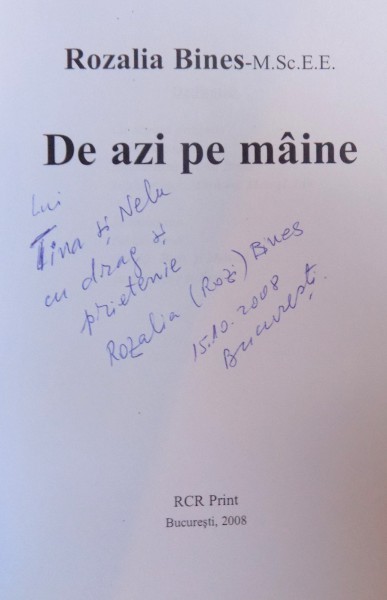 Rozalia Bines-M.Sc.E.E.
De azi pe mâine
Lui
Tina și Nelu
cu drag și
prietenie
Rozalia (Rozi) Bines
15.10.2008
București.
RCR Print
București, 2008